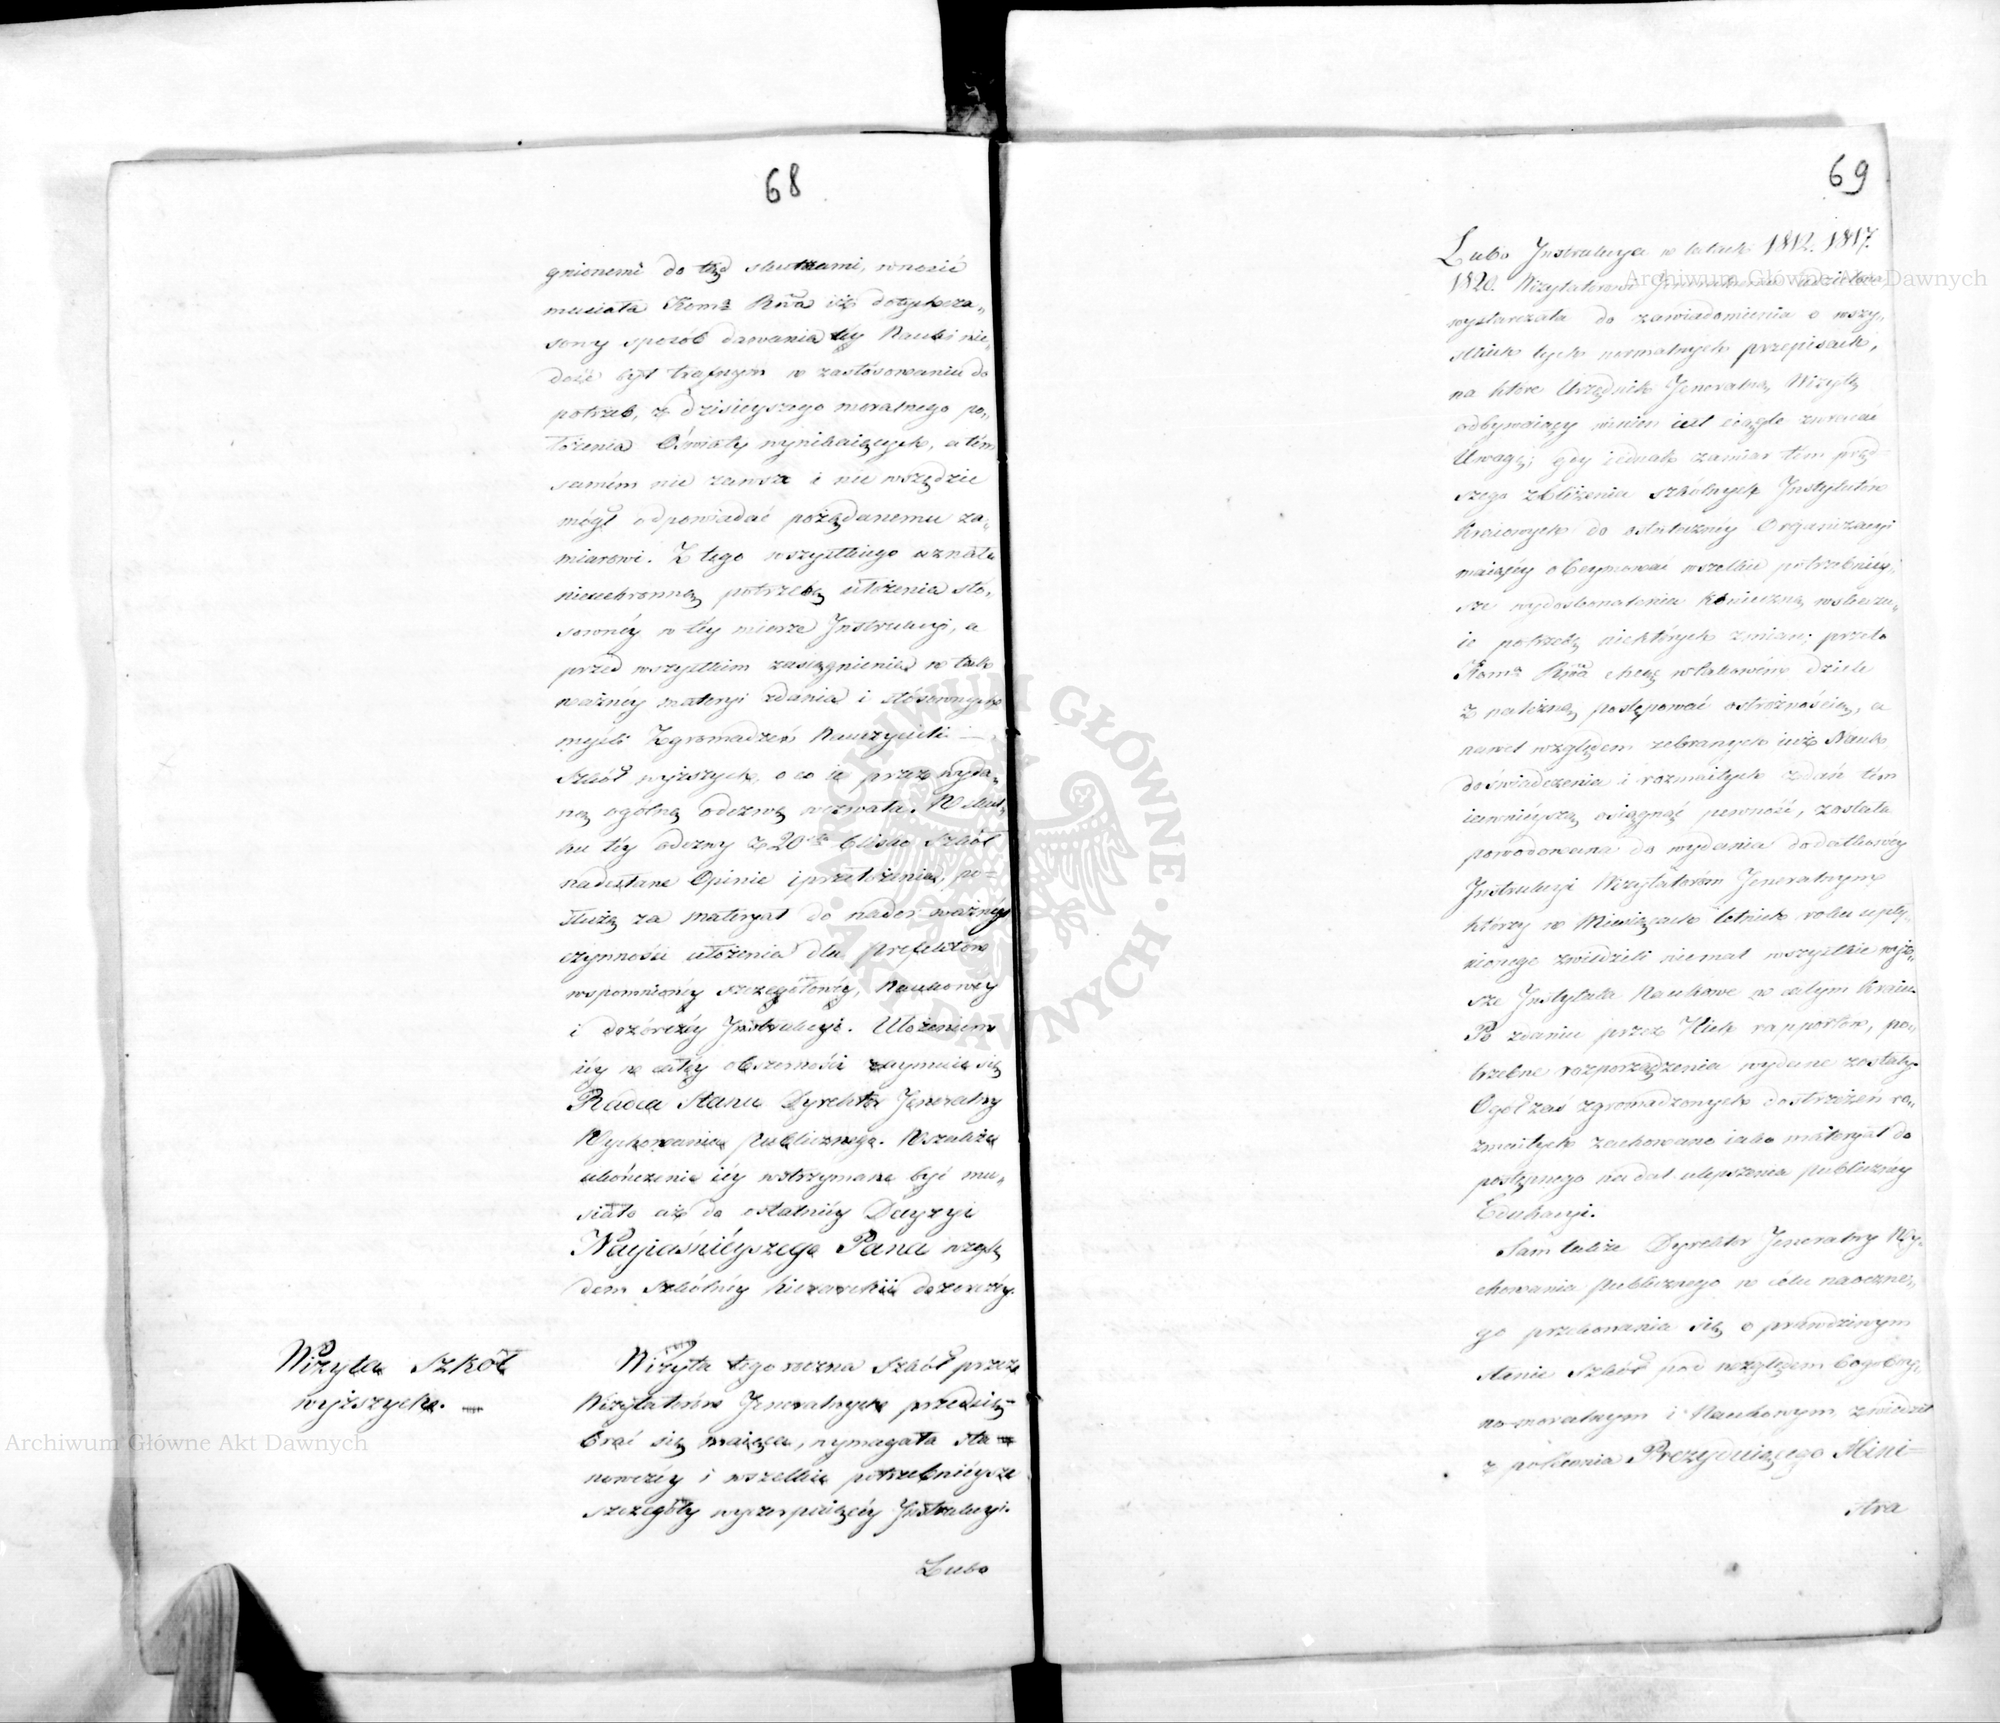 68
gnionemi do tąd skutkami, wnosić
musiała Komā Rźwa iż dotychcza„
sowy sposób dawania téy Nauki nie„
dość był trafnym w zastósowaniu do
potrzeb, z dzisieyszego moralnego po„
łożenia Oświaty wynikaiących, a tém
samém nie zawsze i nie wszędzie
mógł odpowiadać pożądanemu za„
miarowi. Z tego wszystkiego uznała
nieuchronną potrzebę ułożenia stó„
sownéy w téy mierze Instrukcyi, a
przed wszystkim zasięgnienia w tak
ważnéy materyi zdania i stósownych
myśli Zgromadzeń Nauczycieli —
Szkół wyższych, o co ie przez wyda„
ną ogólną odezwę wezwała. W skut„
ku téy odezwy z 20stu blisko Szkół
nadesłane Opinie i przełożenia, po=
służą za materyał do nader ważnéy
czynności ułożenia dla Prefektów
wspomnionéy szczegółowéy, Naukowey
i dozórczéy Instrukcyi. Ułożeniem
iéy w całéy obszerności zaymuie się
Radca Stanu Dyrektor Jeneralny
Wychowania Publicznego. Wszakże
ukończenie iéy wstrzymane być mu„
siało aż do ostatniéy Decyzyi
Nayiaśniéyszego Pana wzglę
dem Szkólnéy hierarchii dozorczéy.
Wizyta Szkół
wyższych. —
Wizyta tegoroczna Szkół przez
Wizytatorów Jeneralnych przedsię=
brać się maiąca, wymagała sta=
nowczéy i wszelkie potrzebnieysze
szczegóły wyczerpuiącéy Instrukcyi.
Lubo
69
Lubo Instrukcya w latach 1812. 1817.
1820. Wizytatorom Jeneralnym udzielona
wystarczała do zawiadomienia o wszy„
stkich tych normalnych przepisach,
na które Urzędnik Jeneralną Wizytę
odbywaiący winien iest ciągle zwracać
Uwagę; gdy iednak zamiar tém pręd=
szego zbliżenia szkólnych Instytutów
Kraiowych do ostatecznéy Organizacyi
maiącéy obeymować wszelkie potrzebniéy„
sze wydoskonalenia konieczną wskazu„
ie potrzebę niektórych zmian; przeto
Komā Rźwa chcąc w takowém dziele
z należną postępować ostrożnością, a
nawet względem zebranych iuż Nauk
doświadczenia i rozmaitych zdań tém
iawniéyszą osiągnąć pewność, została
powodowana do wydania dodatkowéy
Instrukcyi Wizytatorom Jeneralnym
którzy w Miesiącach letnich roku upły„
nionego zwiedzili niemal wszystkie wyż„
sze Instytuta Naukowe w całym Kraiu.
Po zdaniu przez Nich rapportów, po„
trzebne rozporządzenia wydane zostały.
Ogół zaś zgromadzonych dostrzeżeń ro„
zmaitych zachowano iako materyał do
postępnego nadal ulepszenia publicznéy
Edukacyi.
Sam także Dyrektor Jeneralny Wy„
chowania Publicznego w celu naoczne„
go przekonania się o prawdziwym
stanie Szkół pod względem bogoboy„
no-moralnym i Naukowym zwiedził
z polecenia Prezyduiącego Mini=
stra
Archiwum Główne Akt Dawnych
Archiwum Główne Akt Dawnych
ARCHIWUM GŁÓWNE · AKT DAWNYCH ·